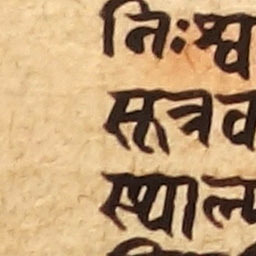 निःश्व
सूत्रव
स्थाल्